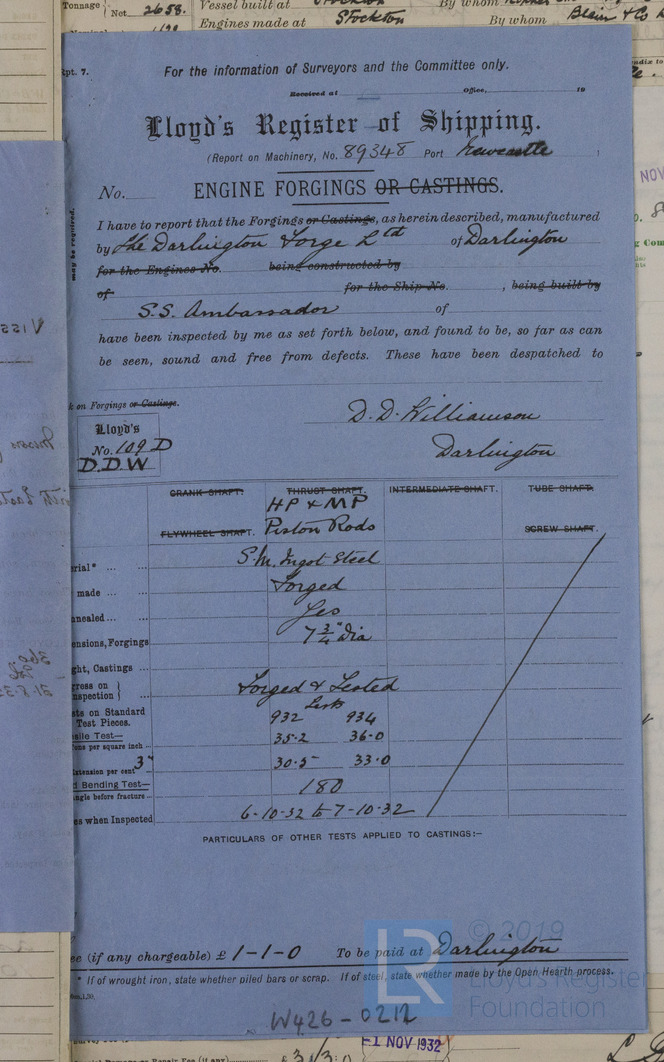 Tonnage Net 2658. Vessel built at Stockton By whom
Engines made at Stockton By whom Blair & Co
Rpt. 7.
For the information of Surveyors and the Committee only.
Received at Office, 19
Lloyd's Register of Shipping.
(Report on Machinery, No. 89348 Port Newcastle )
No. ENGINE FORGINGS OR CASTINGS.
may be required.
I have to report that the Forgings or Castings, as herein described, manufactured
by The Darlington Forge Ltd of Darlington
for the Engines No. being constructed by
of for the Ship No. , being built by
S.S. Ambassador of
have been inspected by me as set forth below, and found to be, so far as can
be seen, sound and free from defects. These have been despatched to
k on Forgings or Castings.
D. D. Williamson
Darlington
Lloyd's
No. 109 D
D.D.W
CRANK SHAFT. THRUST SHAFT. INTERMEDIATE SHAFT. TUBE SHAFT.
HP & MP
FLYWHEEL SHAFT. Piston Rods SCREW SHAFT.
erial* ... ... S.M. Ingot Steel
made ... ... Forged
nnealed ... ... Yes
ensions, Forgings 7 3/4" Dia
ght, Castings ...
gress on
nspection } ... Forged & Tested
Tests
sts on Standard
Test Pieces. 932 934
sile Test—
Tons per square inch .. 35·2 36·0
Extension per cent 3" 30·5 33·0
d Bending Test—
ngle before fracture .. 180
es when Inspected 6-10-32 to 7-10-32
PARTICULARS OF OTHER TESTS APPLIED TO CASTINGS:—
ee (if any chargeable) £ 1-1-0 To be paid at Darlington
* If of wrought iron, state whether piled bars or scrap. If of steel, state whether made by the Open Hearth process.
© 2019
LR
Lloyd's Register
Foundation
W426-0212
1 NOV 1932